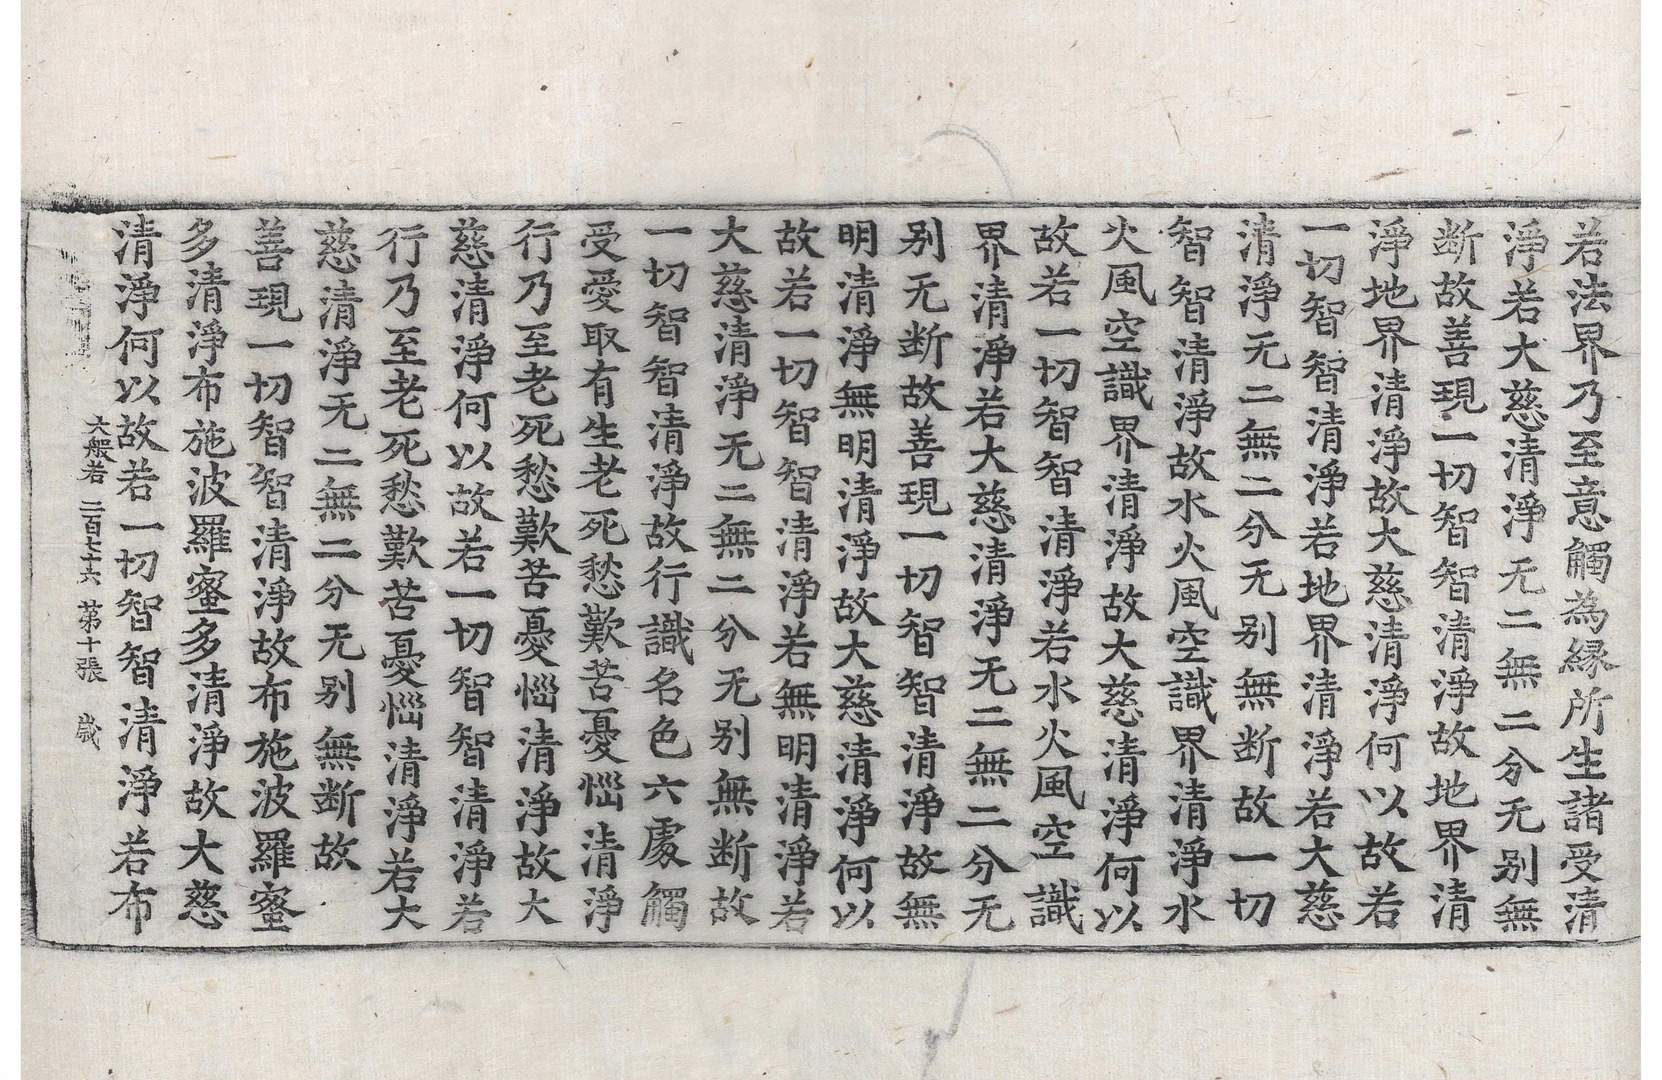 若法界乃至意觸為縁所生諸受清
淨若大慈清淨无二無二分无别無
断故善現一切智智清淨故地界清
淨地界清淨故大慈清淨何以故若
一切智智清淨若地界清淨若大慈
清淨无二無二分无别無断故一切
智智清淨故水火風空識界清淨水
火風空識界清淨故大慈清淨何以
故若一切智智清淨若水火風空識
界清淨若大慈清淨无二無二分无
别无断故善現一切智智清淨故無
明清淨無明清淨故大慈清淨何以
故若一切智智清淨若無明清淨若
大慈清淨无二無二分无别無断故
一切智智清淨故行識名色六處觸
受愛取有生老死愁歎苦憂惱清淨
行乃至老死愁歎苦憂惱清淨故大
慈清淨何以故若一切智智清淨若
行乃至老死愁歎苦憂惱清淨若大
慈清淨无二無二分无别無断故
善現一切智智清淨故布施波羅蜜
多清淨布施波羅蜜多清淨故大慈
清淨何以故若一切智智清淨若布
大般若 二百七十六 第十張 歳